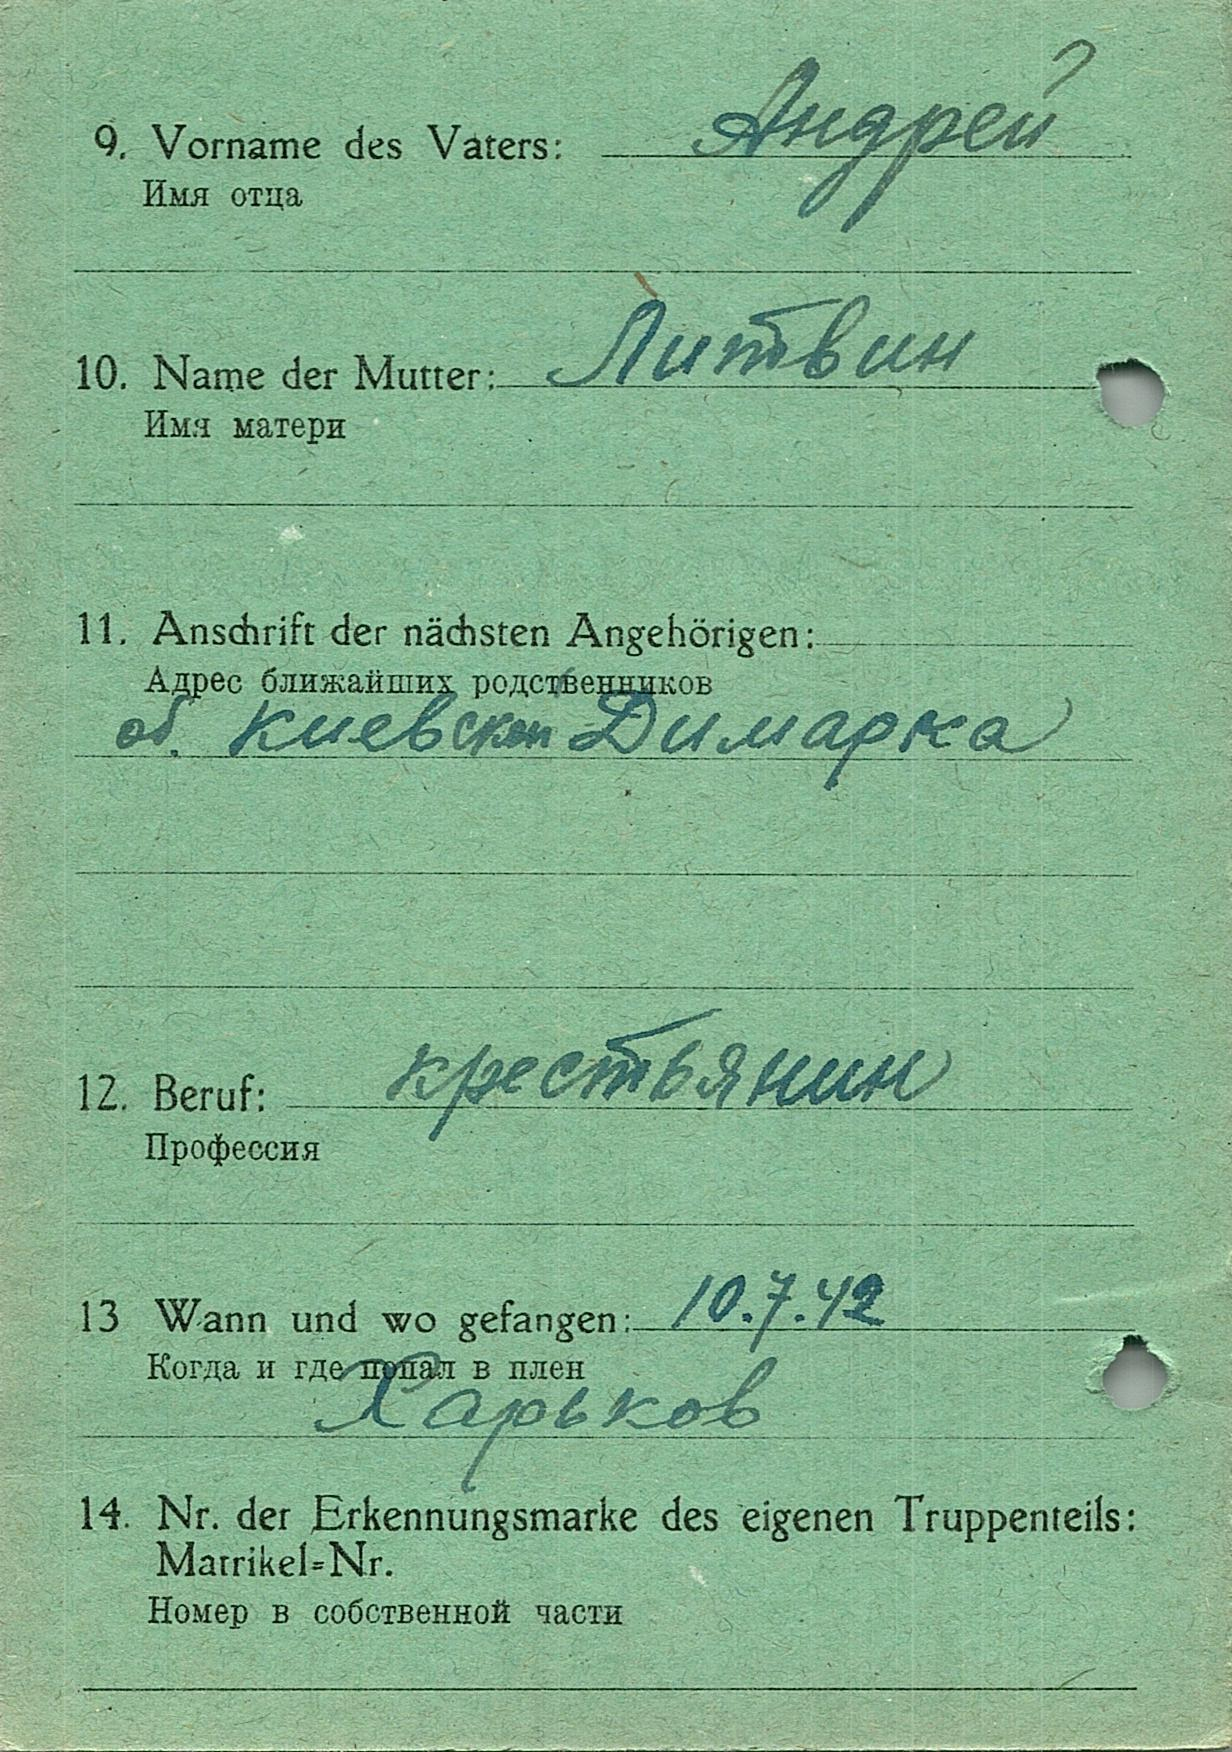 9. Vorname des Vaters: Андрей
Имя отца
10. Name der Mutter: Литвин
Имя матери
11. Anschrift der nächsten Angehörigen:
Адрес ближайших родственников
об. Киевской Димарка
12. Beruf: крестьянин
Профессия
13 Wann und wo gefangen: 10.7.42
Когда и где попал в плен
Харьков
14. Nr. der Erkennungsmarke des eigenen Truppenteils:
Matrikel=Nr.
Номер в собственной части